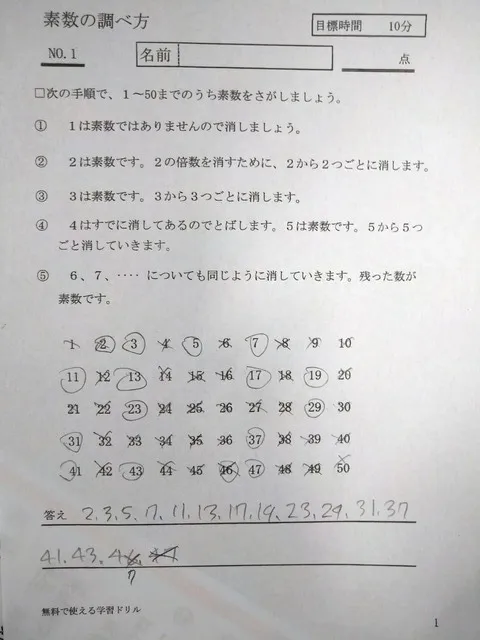 素数の調べ方
目標時間 10分
NO.1
名前
点
□次の手順で、1～50までのうち素数をさがしましょう。
① 1は素数ではありませんので消しましょう。
② 2は素数です。2の倍数を消すために、2から2つごとに消します。
③ 3は素数です。3から3つごとに消します。
④ 4はすでに消してあるのでとばします。5は素数です。5から5つ
ごと消していきます。
⑤ 6、7、‥‥ についても同じように消していきます。残った数が
素数です。
1 2 3 4 5 6 7 8 9 10
11 12 13 14 15 16 17 18 19 20
21 22 23 24 25 26 27 28 29 30
31 32 33 34 35 36 37 38 39 40
41 42 43 44 45 46 47 48 49 50
答え 2,3,5,7,11,13,17,19,23,29,31,37
41,43,4
7
無料で使える学習ドリル
1